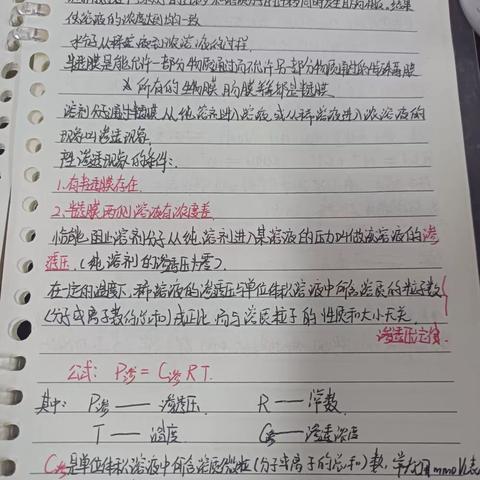 使溶液的浓度达到均一致
水分从稀溶液到浓溶液的过程.
半透膜是能允许一部分物质通过而不允许另一部分物质通过的生物薄膜
※ 所有的生物膜
溶剂分子通过半透膜从纯溶剂进入溶液或从稀溶液进入浓溶液的
现象叫渗透现象.
渗透现象的条件:
1.有半透膜存在.
2.半透膜两侧溶液有浓度差
恰能阻止溶剂分子从纯溶剂进入某溶液的压力叫做该溶液的渗
透压.(纯溶剂的渗透压为零).
在一定的温度下,稀溶液的渗透压与单位体积溶液中所含溶质的粒子数
(分子或离子数的总和)成正比,而与溶质粒子的性质和大小无关.
渗透压定律.
公式: P渗 = C渗RT.
其中: P渗 —— 渗透压. R —— 常数.
T —— 温度 C渗 —— 渗透浓度
C渗是单位体积溶液中所含溶质微粒(分子或离子的总和)数,常用mmol/L表